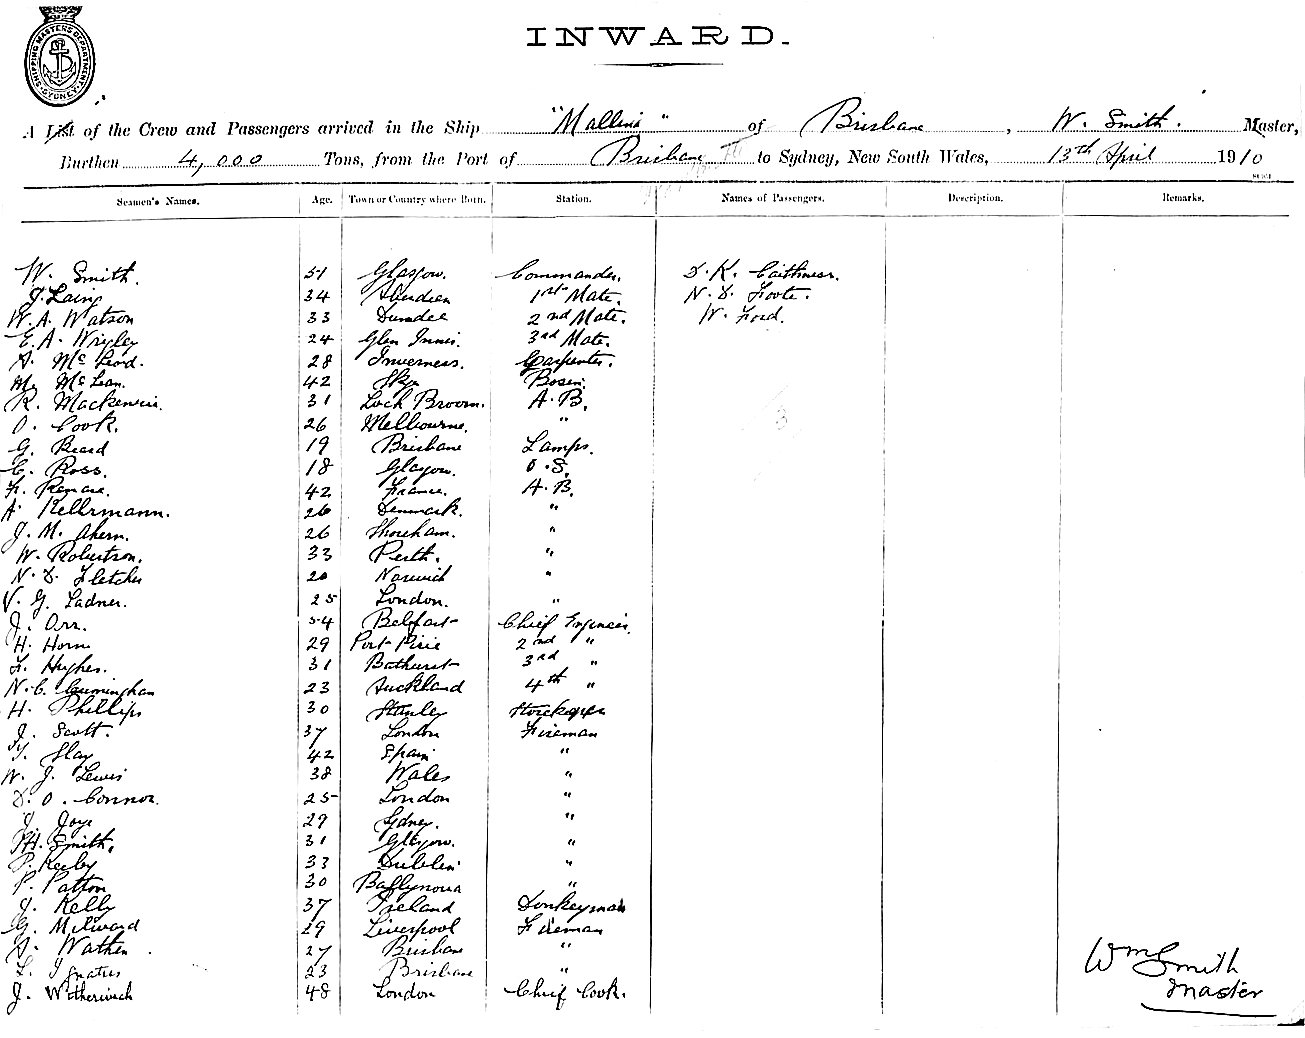 SHIPPING MASTERS DEPARTMENT SYDNEY
INWARD.
A List of the Crew and Passengers arrived in the Ship "Mallina" of Brisbane, W. Smith. Master,
Burthen 4,000 Tons, from the Port of Brisbane to Sydney, New South Wales, 13th April 1910
Seamen's Names. Age. Town or Country where Born. Station. Names of Passengers. Description. Remarks.
W. Smith. 51 Glasgow. Commander. D. K. Caithness.
J. Laing 34 Aberdeen 1st Mate. N. D. Foote.
W. A. Watson 33 Dundee 2nd Mate. W. Ford.
E. A. Wrigley 24 Glen Innis. 3rd Mate.
A. McLeod. 28 Inverness. Carpenter.
M. McLean. 42 Skye Bosen.
R. Mackenzie. 31 Loch Broom. A.B.
O. Cook. 26 Melbourne. "
G. Beard 19 Brisbane Lamps.
C. Ross. 18 Glasgow. O.S.
F. 42 France. A.B.
A. Kellrmann. 26 Denmark. "
J. M. Ahern. 26 Shoreham. "
W. Robertson. 33 Perth. "
N. D. Fletcher 20 Norwich "
V. G. Ladner. 25 London. "
J. Orr. 54 Belfast Chief Engineer.
H. Horn 29 Port Pirie 2nd "
F. Hughes. 31 Bathurst 3rd "
N. C. Cunningham 23 Auckland 4th "
H. Phillips 30 Stanley Storekeeper
J. Scott. 37 London Fireman
42 Spain "
W. J. Lewis 38 Wales "
D. O. Connor. 25 London "
J. Joye 29 Sydney. "
H. Smith. 31 Glasgow. "
P. Keeley 33 Dublin "
P. Patton 30 "
J. Kelly 37 Ireland Donkeyman
G. Milward 29 Liverpool Fireman
A. Wathen 27 Brisbane "
L. Ignatius 23 Brisbane "
J. 48 London Chief Cook.
Wm Smith
Master